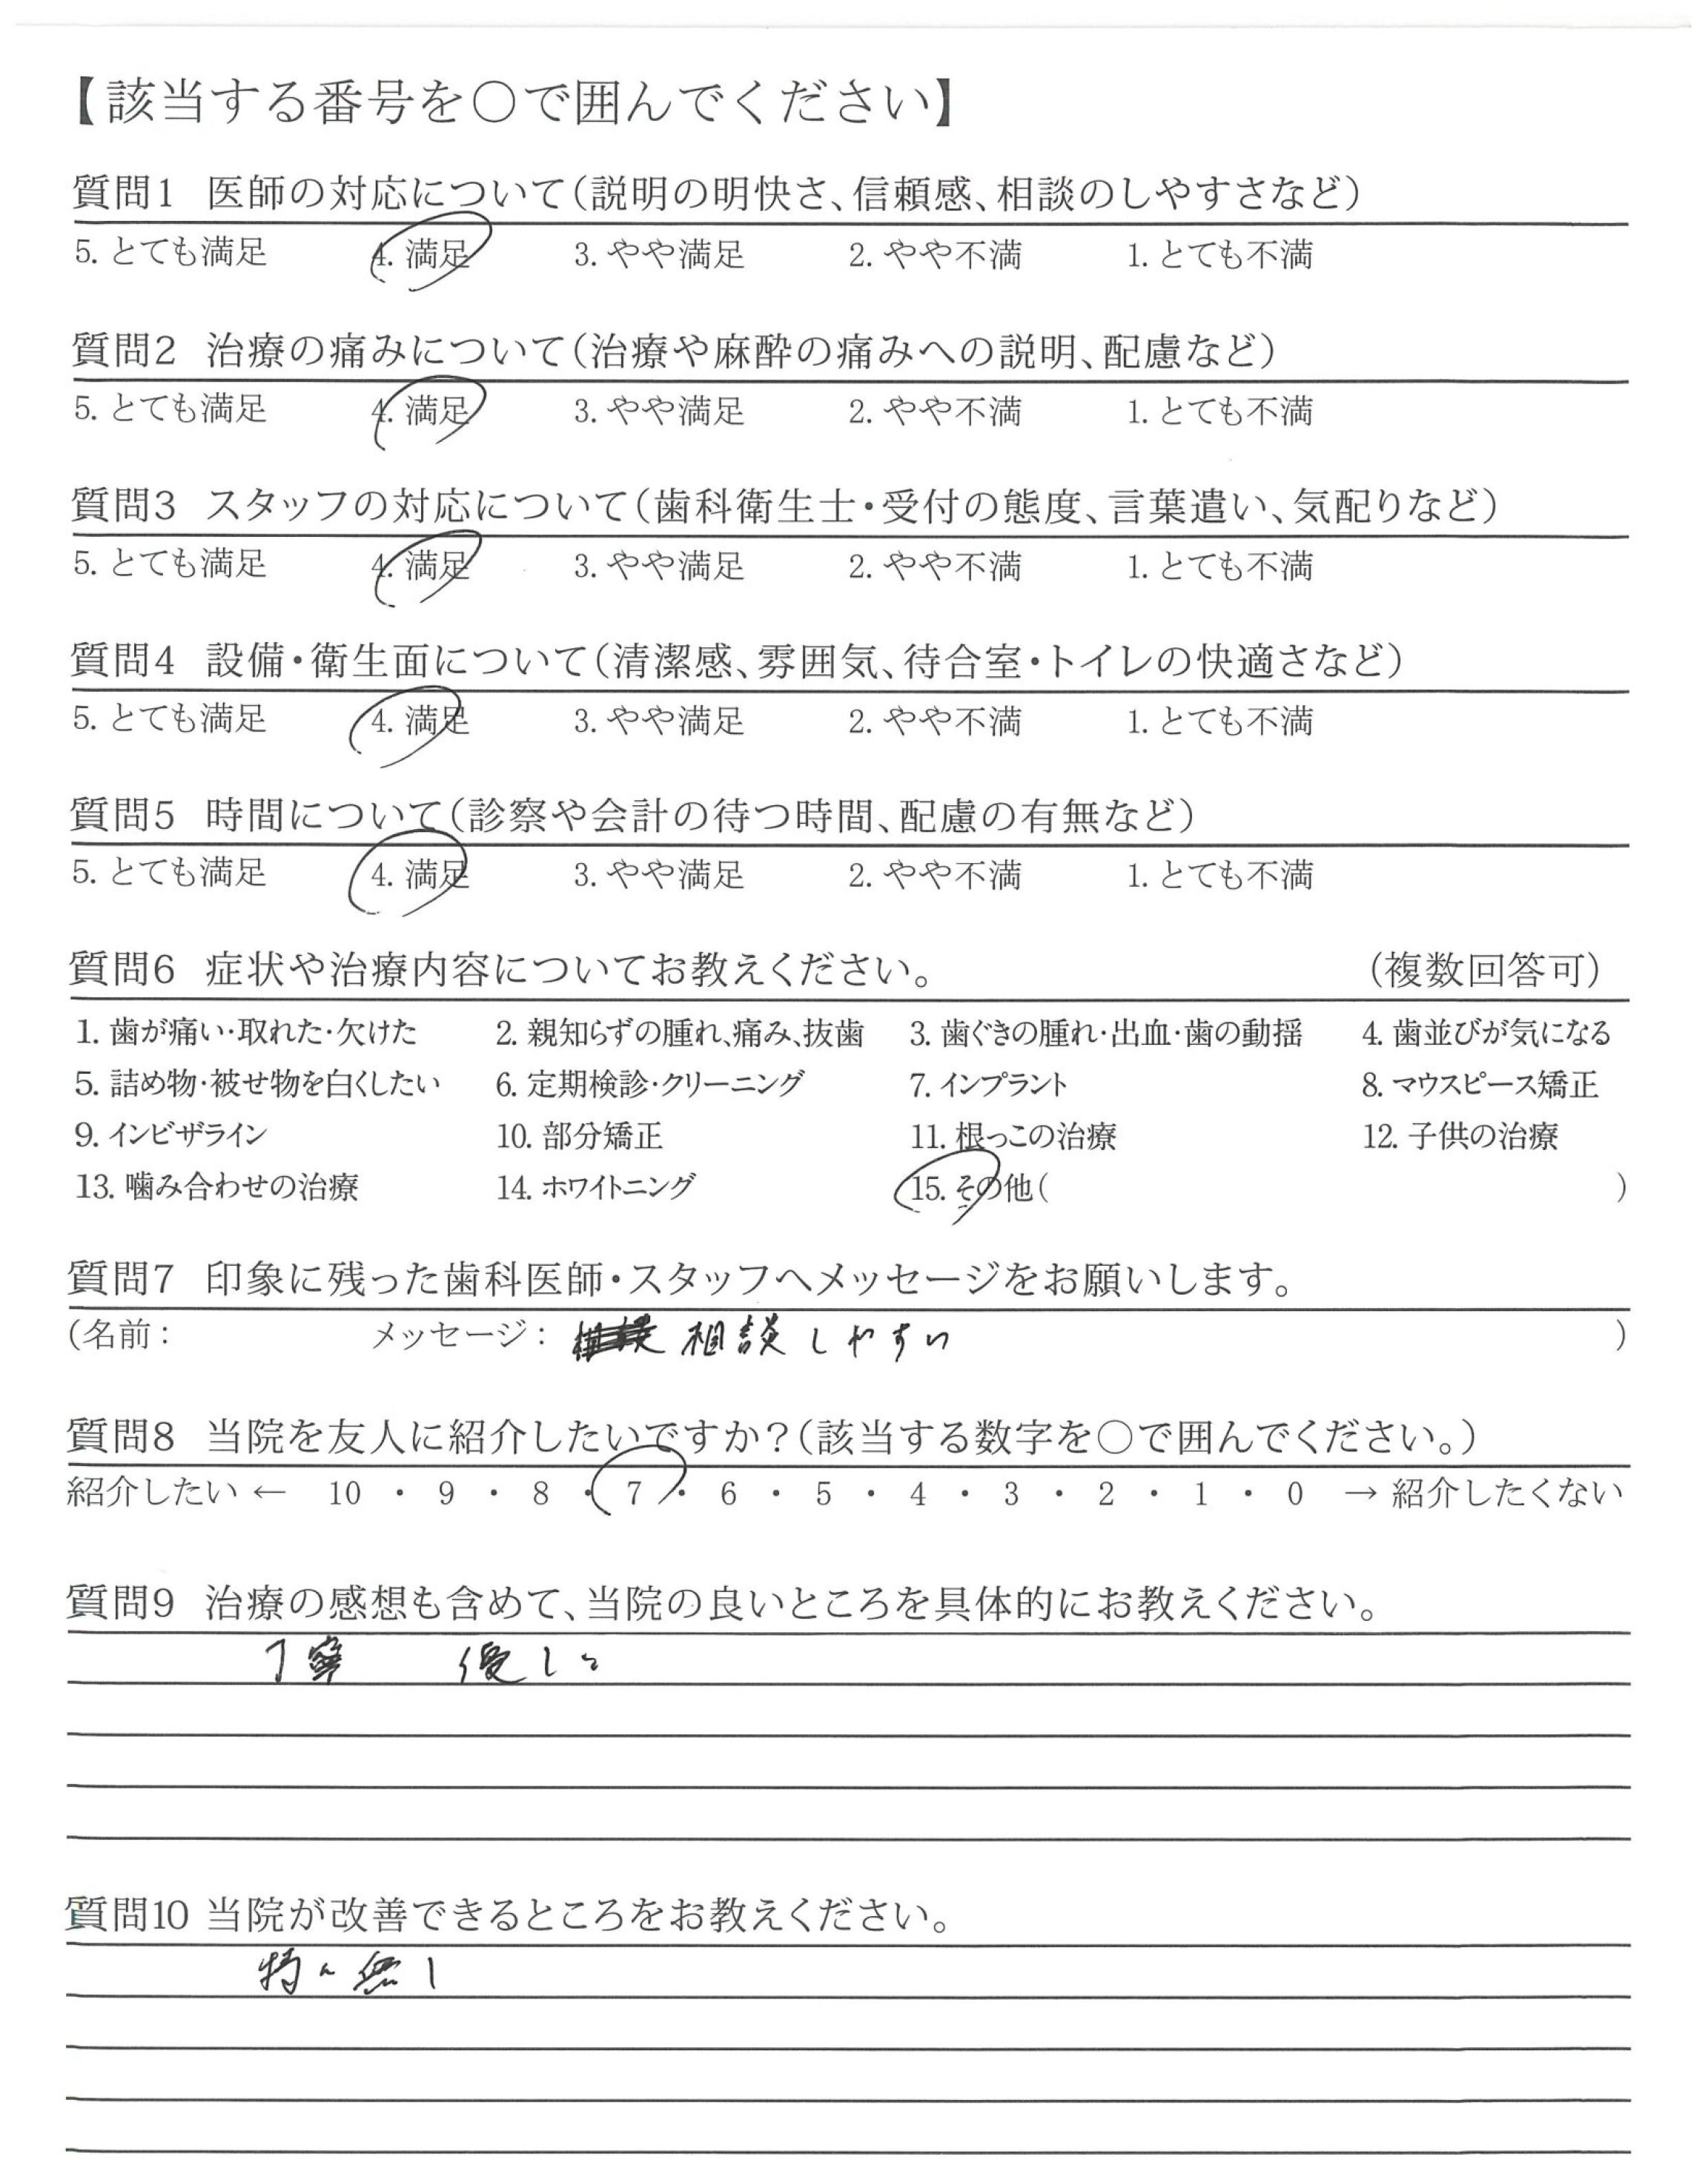 【該当する番号を○で囲んでください】
質問1 医師の対応について(説明の明快さ、信頼感、相談のしやすさなど)
5. とても満足 4. 満足 3. やや満足 2. やや不満 1. とても不満
質問2 治療の痛みについて(治療や麻酔の痛みへの説明、配慮など)
5. とても満足 4. 満足 3. やや満足 2. やや不満 1. とても不満
質問3 スタッフの対応について(歯科衛生士・受付の態度、言葉遣い、気配りなど)
5. とても満足 4. 満足 3. やや満足 2. やや不満 1. とても不満
質問4 設備・衛生面について(清潔感、雰囲気、待合室・トイレの快適さなど)
5. とても満足 4. 満足 3. やや満足 2. やや不満 1. とても不満
質問5 時間について(診察や会計の待つ時間、配慮の有無など)
5. とても満足 4. 満足 3. やや満足 2. やや不満 1. とても不満
質問6 症状や治療内容についてお教えください。 (複数回答可)
1. 歯が痛い・取れた・欠けた 2. 親知らずの腫れ、痛み、抜歯 3. 歯ぐきの腫れ・出血・歯の動揺 4. 歯並びが気になる
5. 詰め物・被せ物を白くしたい 6. 定期検診・クリーニング 7. インプラント 8. マウスピース矯正
9. インビザライン 10. 部分矯正 11. 根っこの治療 12. 子供の治療
13. 噛み合わせの治療 14. ホワイトニング 15. その他( )
質問7 印象に残った歯科医師・スタッフへメッセージをお願いします。
(名前: メッセージ: 相談しやすい )
質問8 当院を友人に紹介したいですか?(該当する数字を○で囲んでください。)
紹介したい ← 10 ・ 9 ・ 8 ・ 7 ・ 6 ・ 5 ・ 4 ・ 3 ・ 2 ・ 1 ・ 0 → 紹介したくない
質問9 治療の感想も含めて、当院の良いところを具体的にお教えください。
丁寧 優しい
質問10 当院が改善できるところをお教えください。
特に無し